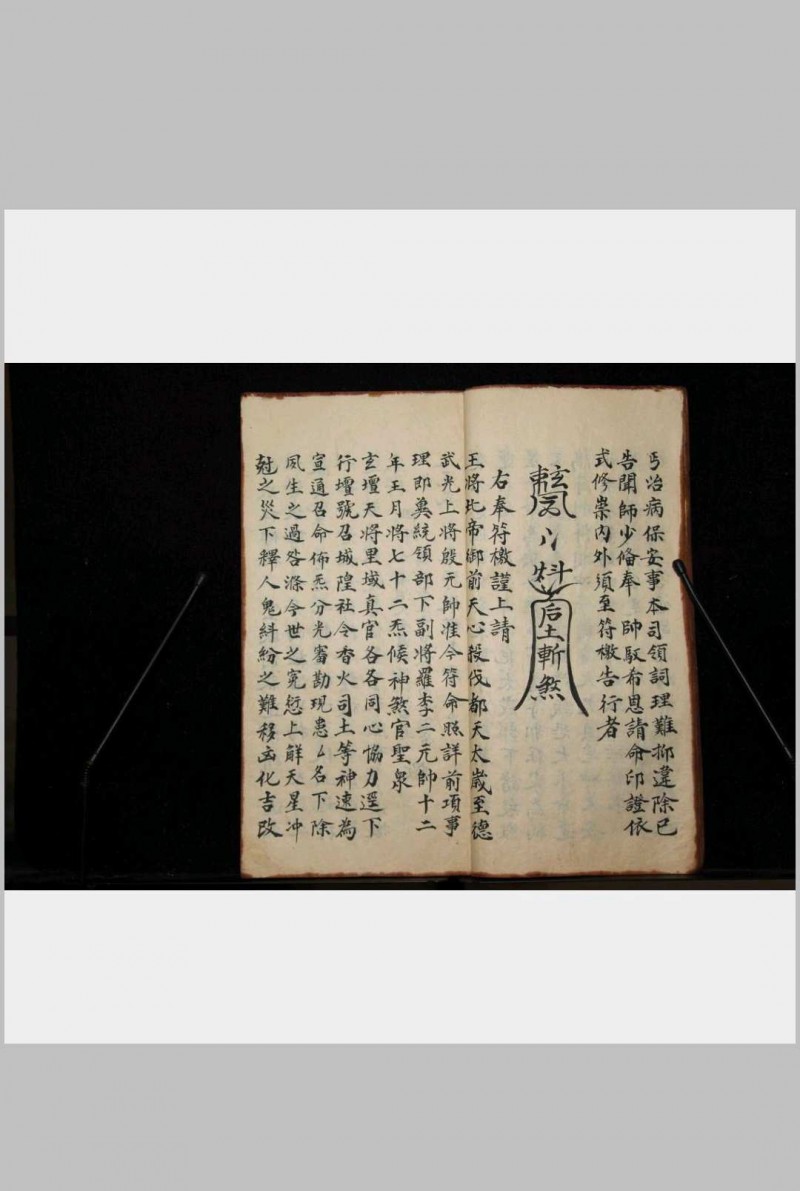 丐治病保安事本司領詞理難抑違除已
告聞師少俻奉 帥馭布恩請命印證依
式修崇內外須至符檄告行者
后土斬煞
右奉符檄謹上請
王將北帝御前天心殺伐都天太歲至德
武光上將殷元帥准今符命照詳前項事
理即奠統領部下副將羅李二元帥十二
年王月將七十二炁候神煞官聖泉
玄壇天將里域真官各各同心恊力遥下
行壇號召城隍社令香火司土等神速為
宣通召命佈炁分光審勘現患厶名下除
夙生之過咎滌今世之寃愆上觧天星冲
尅之災下釋人鬼糾紛之難移凶化吉改